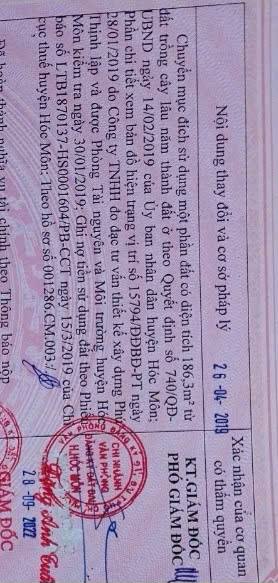 Nội dung thay đổi và cơ sở pháp lý
Xác nhận của cơ quan
có thẩm quyền
26-04-2019
Chuyển mục đích sử dụng một phần đất có diện tích 186,3m² từ
đất trồng cây lâu năm thành đất ở theo Quyết định số 740/QĐ-
UBND ngày 14/02/2019 của Ủy ban nhân dân huyện Hóc Môn;
Phần chi tiết xem bản đồ hiện trạng vị trí số 15794/ĐĐBĐ-PT ngày
28/01/2019 do Công ty TNHH đo đạc tư vấn thiết kế xây dựng Phú
Thịnh lập và được Phòng Tài nguyên và Môi trường huyện Hóc
Môn kiểm tra ngày 30/01/2019; Ghi nợ tiền sử dụng đất theo Phiếu
báo số LTB1870137-HS0001604/PB-CCT ngày 15/3/2019 của Chi
cục thuế huyện Hóc Môn; Theo hồ sơ số 001286.CM.003./.
KT.GIÁM ĐỐC
PHÓ GIÁM ĐỐC
CHI NHÁNH
VĂN PHÒNG
ĐĂNG KÝ ĐẤT ĐAI
H.HÓC MÔN
28-09-2022
Đã hoàn thành nghĩa vụ tài chính theo Thông báo nộp
GIÁM ĐỐC